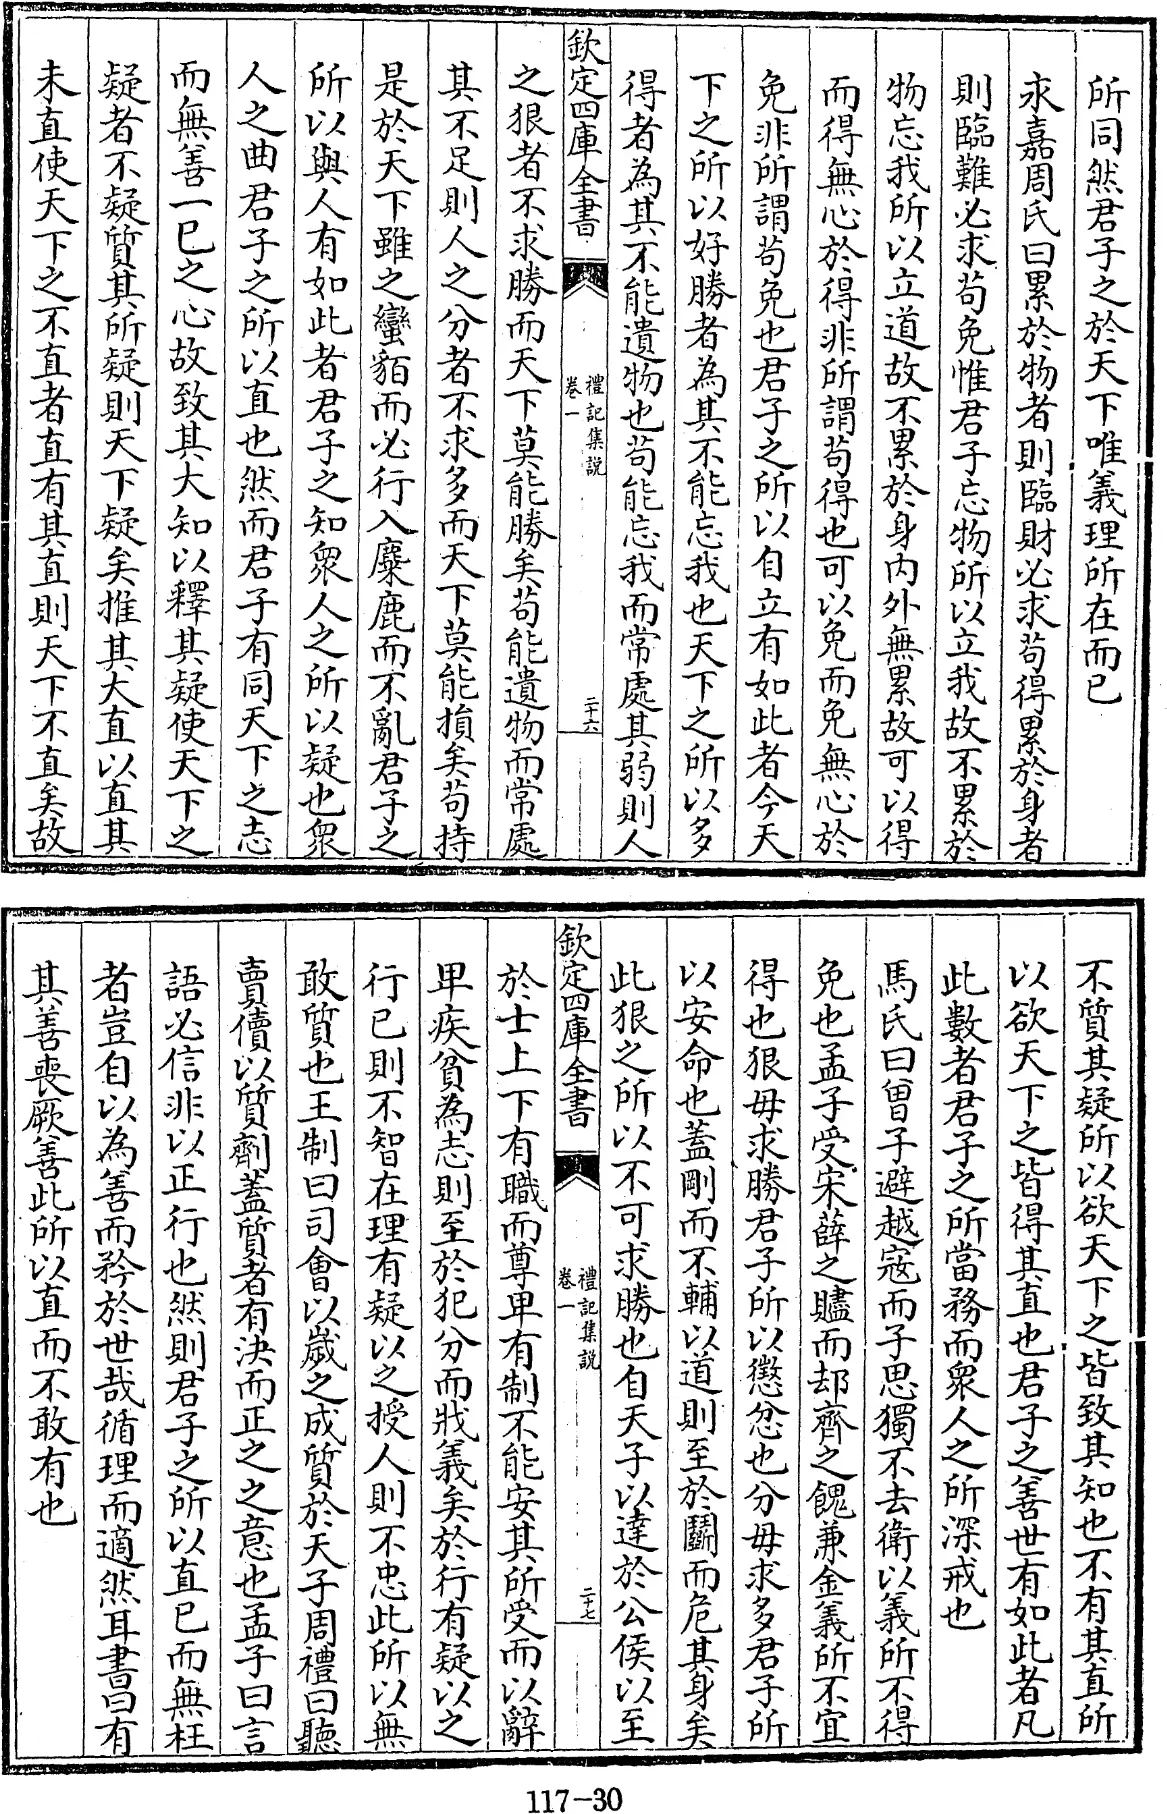 所同然君子之於天下唯義理所在而已
永嘉周氏曰累於物者則臨財必求茍得累於身者
則臨難必求茍免惟君子忘物所以立我故不累於
物忘我所以立道故不累於身内外無累故可以得
而得無心於得非所謂茍得也可以免而免無心於
免非所謂茍免也君子之所以自立有如此者今天
下之所以好勝者為其不能忘我也天下之所以多
得者為其不能遺物也茍能忘我而常處其弱則人
欽定四庫全書
禮記集說
卷一
二十六
之狠者不求勝而天下莫能勝矣茍能遺物而常處
其不足則人之分者不求多而天下莫能損矣茍持
是於天下雖之蠻貊而必行入麋鹿而不亂君子之
所以與人有如此者君子之知衆人之所以疑也衆
人之曲君子之所以直也然而君子有同天下之志
而無善一已之心故致其大知以釋其疑使天下之
疑者不疑質其所疑則天下疑矣推其大直以直其
未直使天下之不直者直有其直則天下不直矣故
不質其疑所以欲天下之皆致其知也不有其直所
以欲天下之皆得其直也君子之善世有如此者凡
此數者君子之所當務而衆人之所深戒也
馬氏曰曾子避越宼而子思獨不去衛以義所不得
免也孟子受宋薛之贐而却齊之餽兼金義所不宜
得也狠毋求勝君子所以懲忿也分毋求多君子所
以安命也蓋剛而不輔以道則至於鬭而危其身矣
此狠之所以不可求勝也自天子以達於公侯以至
欽定四庫全書
禮記集說
卷一
二十七
於士上下有職而尊卑有制不能安其所受而以辭
卑疾貧為志則至於犯分而戕義矣於行有疑以之
行已則不智在理有疑以之授人則不忠此所以無
敢質也王制曰司會以歲之成質於天子周禮曰聽
賣儥以質劑蓋質者有決而正之之意也孟子曰言
語必信非以正行也然則君子之所以直已而無枉
者豈自以為善而矜於世哉循理而適然耳書曰有
其善喪厥善此所以直而不敢有也
117-30